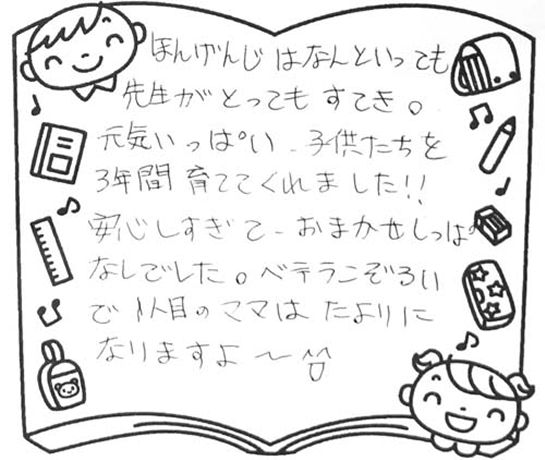 ほんげんじはなんといっても
先生がとってもすてき。
元気いっぱい、子供たちを
3年間育ててくれました!!
安心しすぎて、おまかせしっぱ
なしでした。ベテランぞろい
で1人目のママはたよりに
なりますよ〜